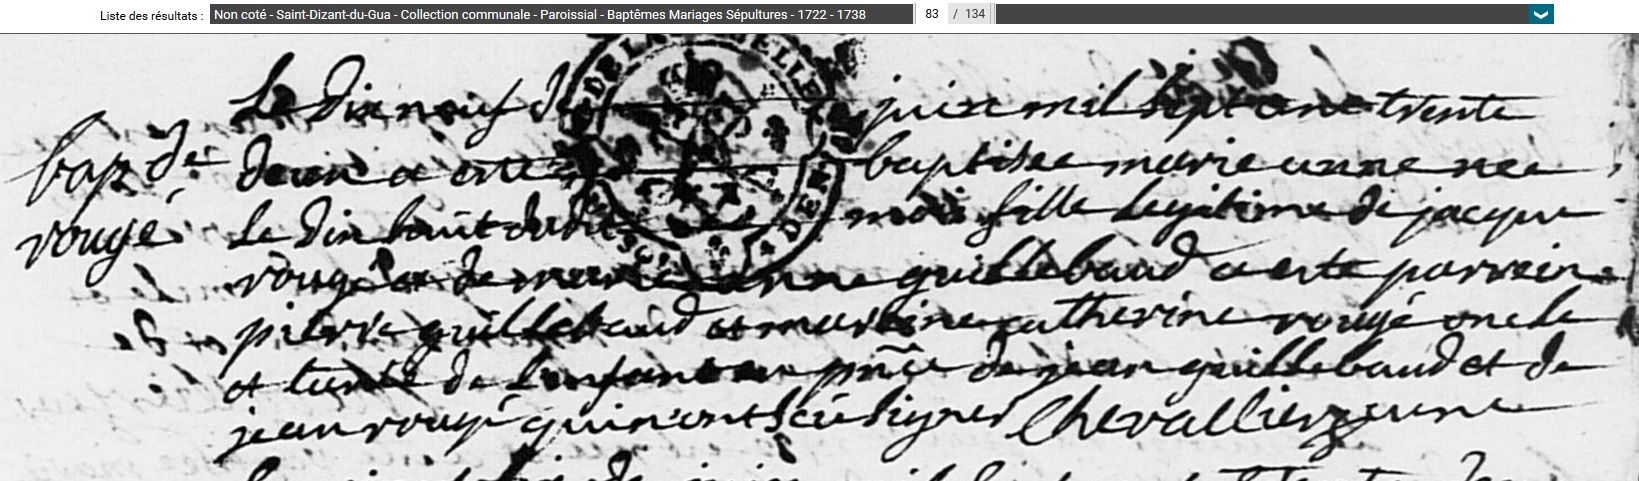 Liste des résultats : Non coté - Saint-Dizant-du-Gua - Collection communale - Paroissial - Baptêmes Mariages Sépultures - 1722 - 1738 83 / 134
DE LA
Le dix neuf de juin mil sept cent trente
bap de
deux a esté baptisée marie anne née
rougé
Le dix huit dudit mois fille Legitime de jacque
rougé et de marie anne guillebaud a esté parrein
pierre guillebaud et marreine catherine rougé oncle
et tante de l'enfant en pnce de jean guillebaud et de
jean rougé qui n'ont sceu signer Chevallier